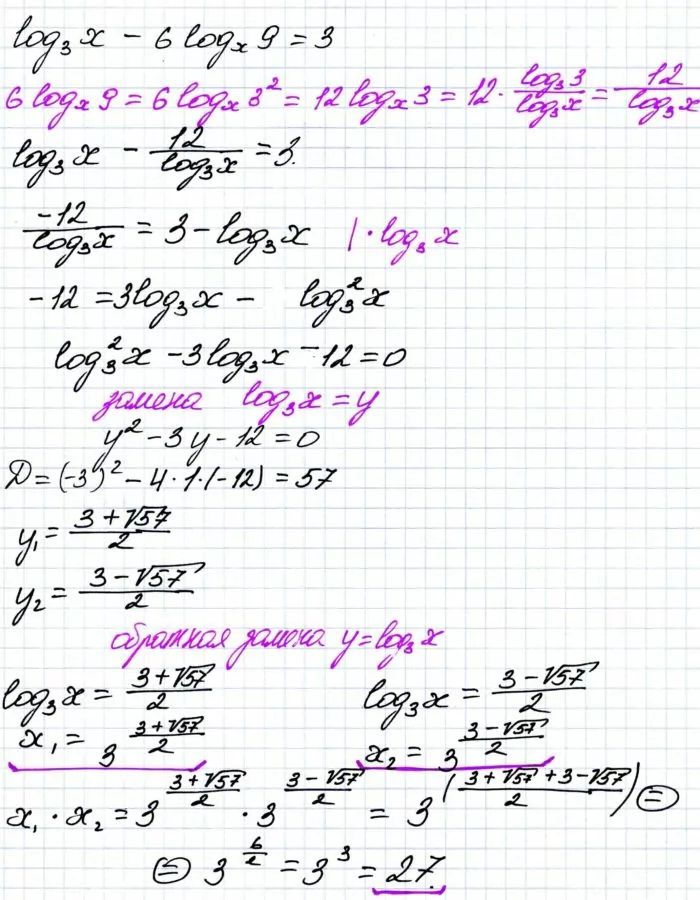 log₃x − 6 logₓ9 = 3
6 logₓ9 = 6 logₓ3² = 12 logₓ3 = 12 · log₃3/log₃x = 12/log₃x
log₃x − 12/log₃x = 3.
−12/log₃x = 3 − log₃x | · log₃x
−12 = 3log₃x − log₃²x
log₃²x − 3log₃x − 12 = 0
замена log₃x = y
y² − 3y − 12 = 0
D = (−3)² − 4·1·(−12) = 57
y₁ = (3 + √57)/2
y₂ = (3 − √57)/2
обратная замена y = log₃x
log₃x = (3 + √57)/2 log₃x = (3 − √57)/2
x₁ = 3^((3+√57)/2) x₂ = 3^((3−√57)/2)
x₁ · x₂ = 3^((3+√57)/2) · 3^((3−√57)/2) = 3^((3+√57+3−√57)/2) =
= 3^(6/2) = 3³ = 27.